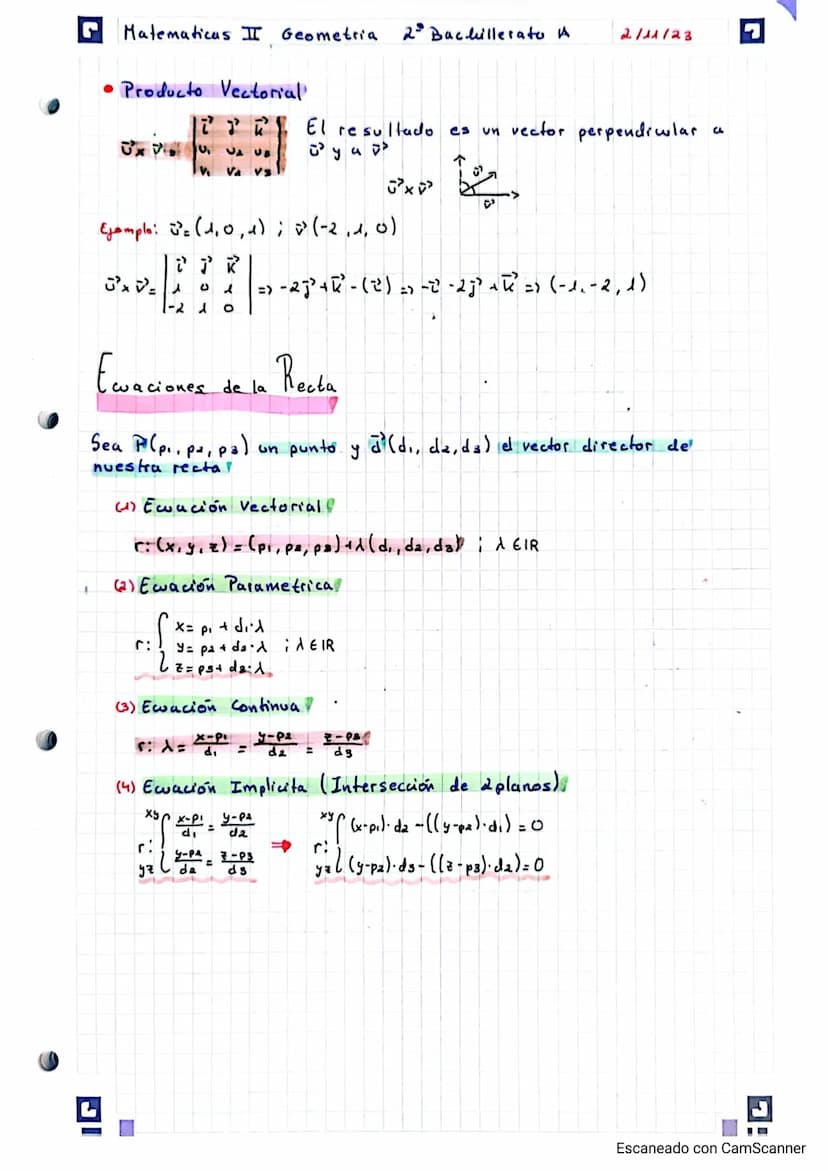 Matematicas II Geometria 2º Bachillerato A 2/11/23
• Producto Vectorial
u⃗ x v⃗ = | i⃗ j⃗ k⃗ | El resultado es un vector perpendicular a
| u1 u2 u3 | u⃗ y a v⃗
| v1 v2 v3 |
u⃗ x v⃗ u⃗
v⃗
Ejemplo: u⃗ = (1, 0, 1) ; v⃗ (-2, 1, 0)
u⃗ x v⃗ = | i⃗ j⃗ k⃗ |
| 1 0 1 | => -2j⃗ + k⃗ - (i⃗) => -i⃗ - 2j⃗ + k⃗ => (-1, -2, 1)
| -2 1 0 |
Ecuaciones de la Recta
Sea P(p1, p2, p3) un punto y d⃗(d1, d2, d3) el vector director de
nuestra recta
(1) Ecuación Vectorial
r: (x, y, z) = (p1, p2, p3) + λ(d1, d2, d3) ; λ ∈ IR
(2) Ecuación Parametrica
x = p1 + d1·λ
r: y = p2 + d2·λ ; λ ∈ IR
z = p3 + d3·λ
(3) Ecuación Continua
r: λ = x-p1/d1 = y-p2/d2 = z-p3/d3
(4) Ecuación Implicita (Intersección de 2 planos)
xy x-p1/d1 = y-p2/d2 ⇒ xy (x-p1)·d2 - ((y-p2)·d1) = 0
r: r:
yz y-p2/d2 = z-p3/d3 yz (y-p2)·d3 - ((z-p3)·d2) = 0
Escaneado con CamScanner